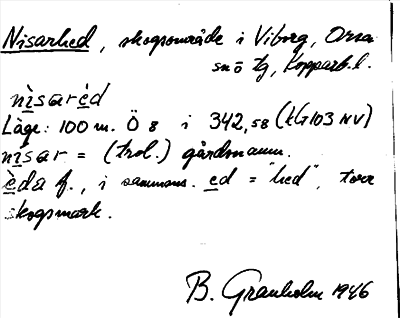 Nisarhed, skogsområde i Viborg, Orsa
snö tg, Kopparb.l.
nìsarèd
Läge: 100 m. Ö 8 i 342,58 (kG103 NV)
nisar = (trol.) gårdsnamn.
èda f., i sammans. ed = "hed", torr
skogsmark.
B. Granholm 1946